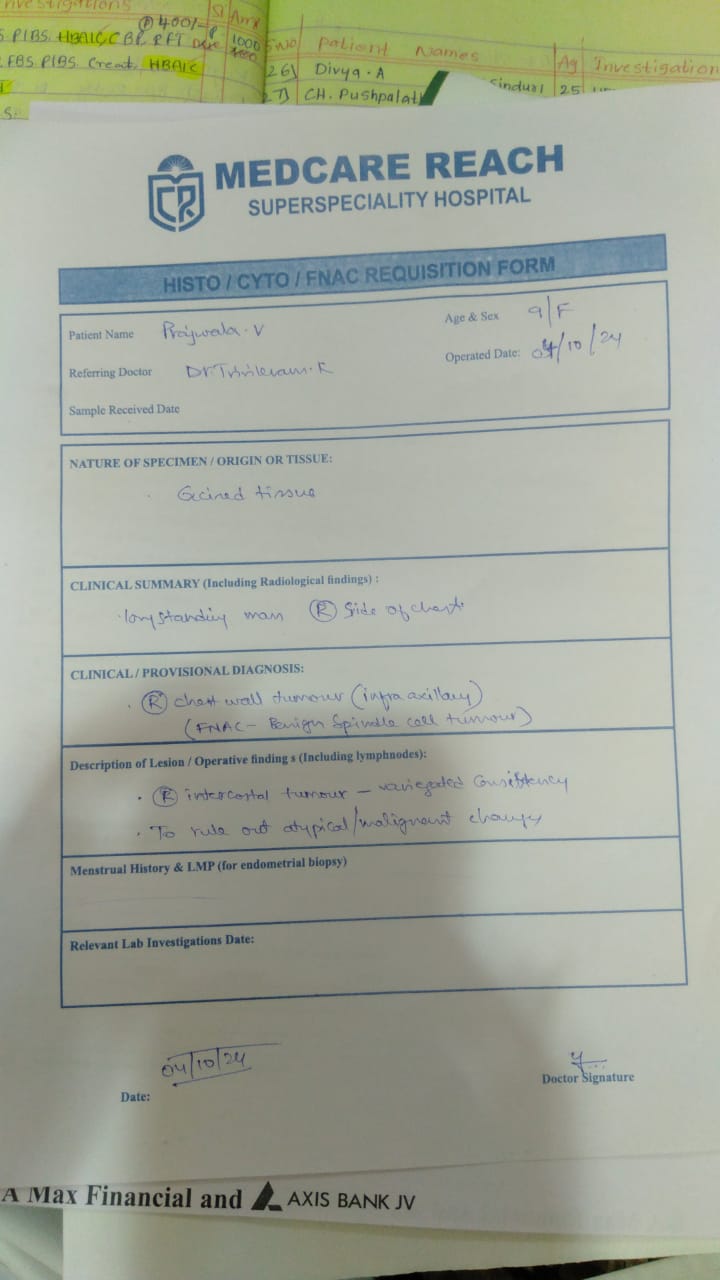 Investigations
SI Amt
400/-
PIBS. HBA1C CBP, RFT 1000
FBS. PIBS. Creat, HBA1C
S.NO Patient Names Ag Investigation
26) Divya . A
27) CH. Pushpalat
25
MEDCARE REACH
SUPERSPECIALITY HOSPITAL
HISTO / CYTO / FNAC REQUISITION FORM
Patient Name Prajwala . V
Age & Sex 9/F
Referring Doctor
Operated Date: 04/10/24
Sample Received Date
NATURE OF SPECIMEN / ORIGIN OR TISSUE:
Excised tissue
CLINICAL SUMMARY (Including Radiological findings) :
long standing mass (R) side of chest
CLINICAL / PROVISIONAL DIAGNOSIS:
(R) chest wall tumour (infra axillary)
(FNAC - Benign Spindle cell tumour)
Description of Lesion / Operative finding s (Including lymphnodes):
(R) intercostal tumour – variegated consistency
To rule out atypical/malignant changes
Menstrual History & LMP (for endometrial biopsy)
Relevant Lab Investigations Date:
04/10/24
Date:
Doctor Signature
A Max Financial and AXIS BANK JV